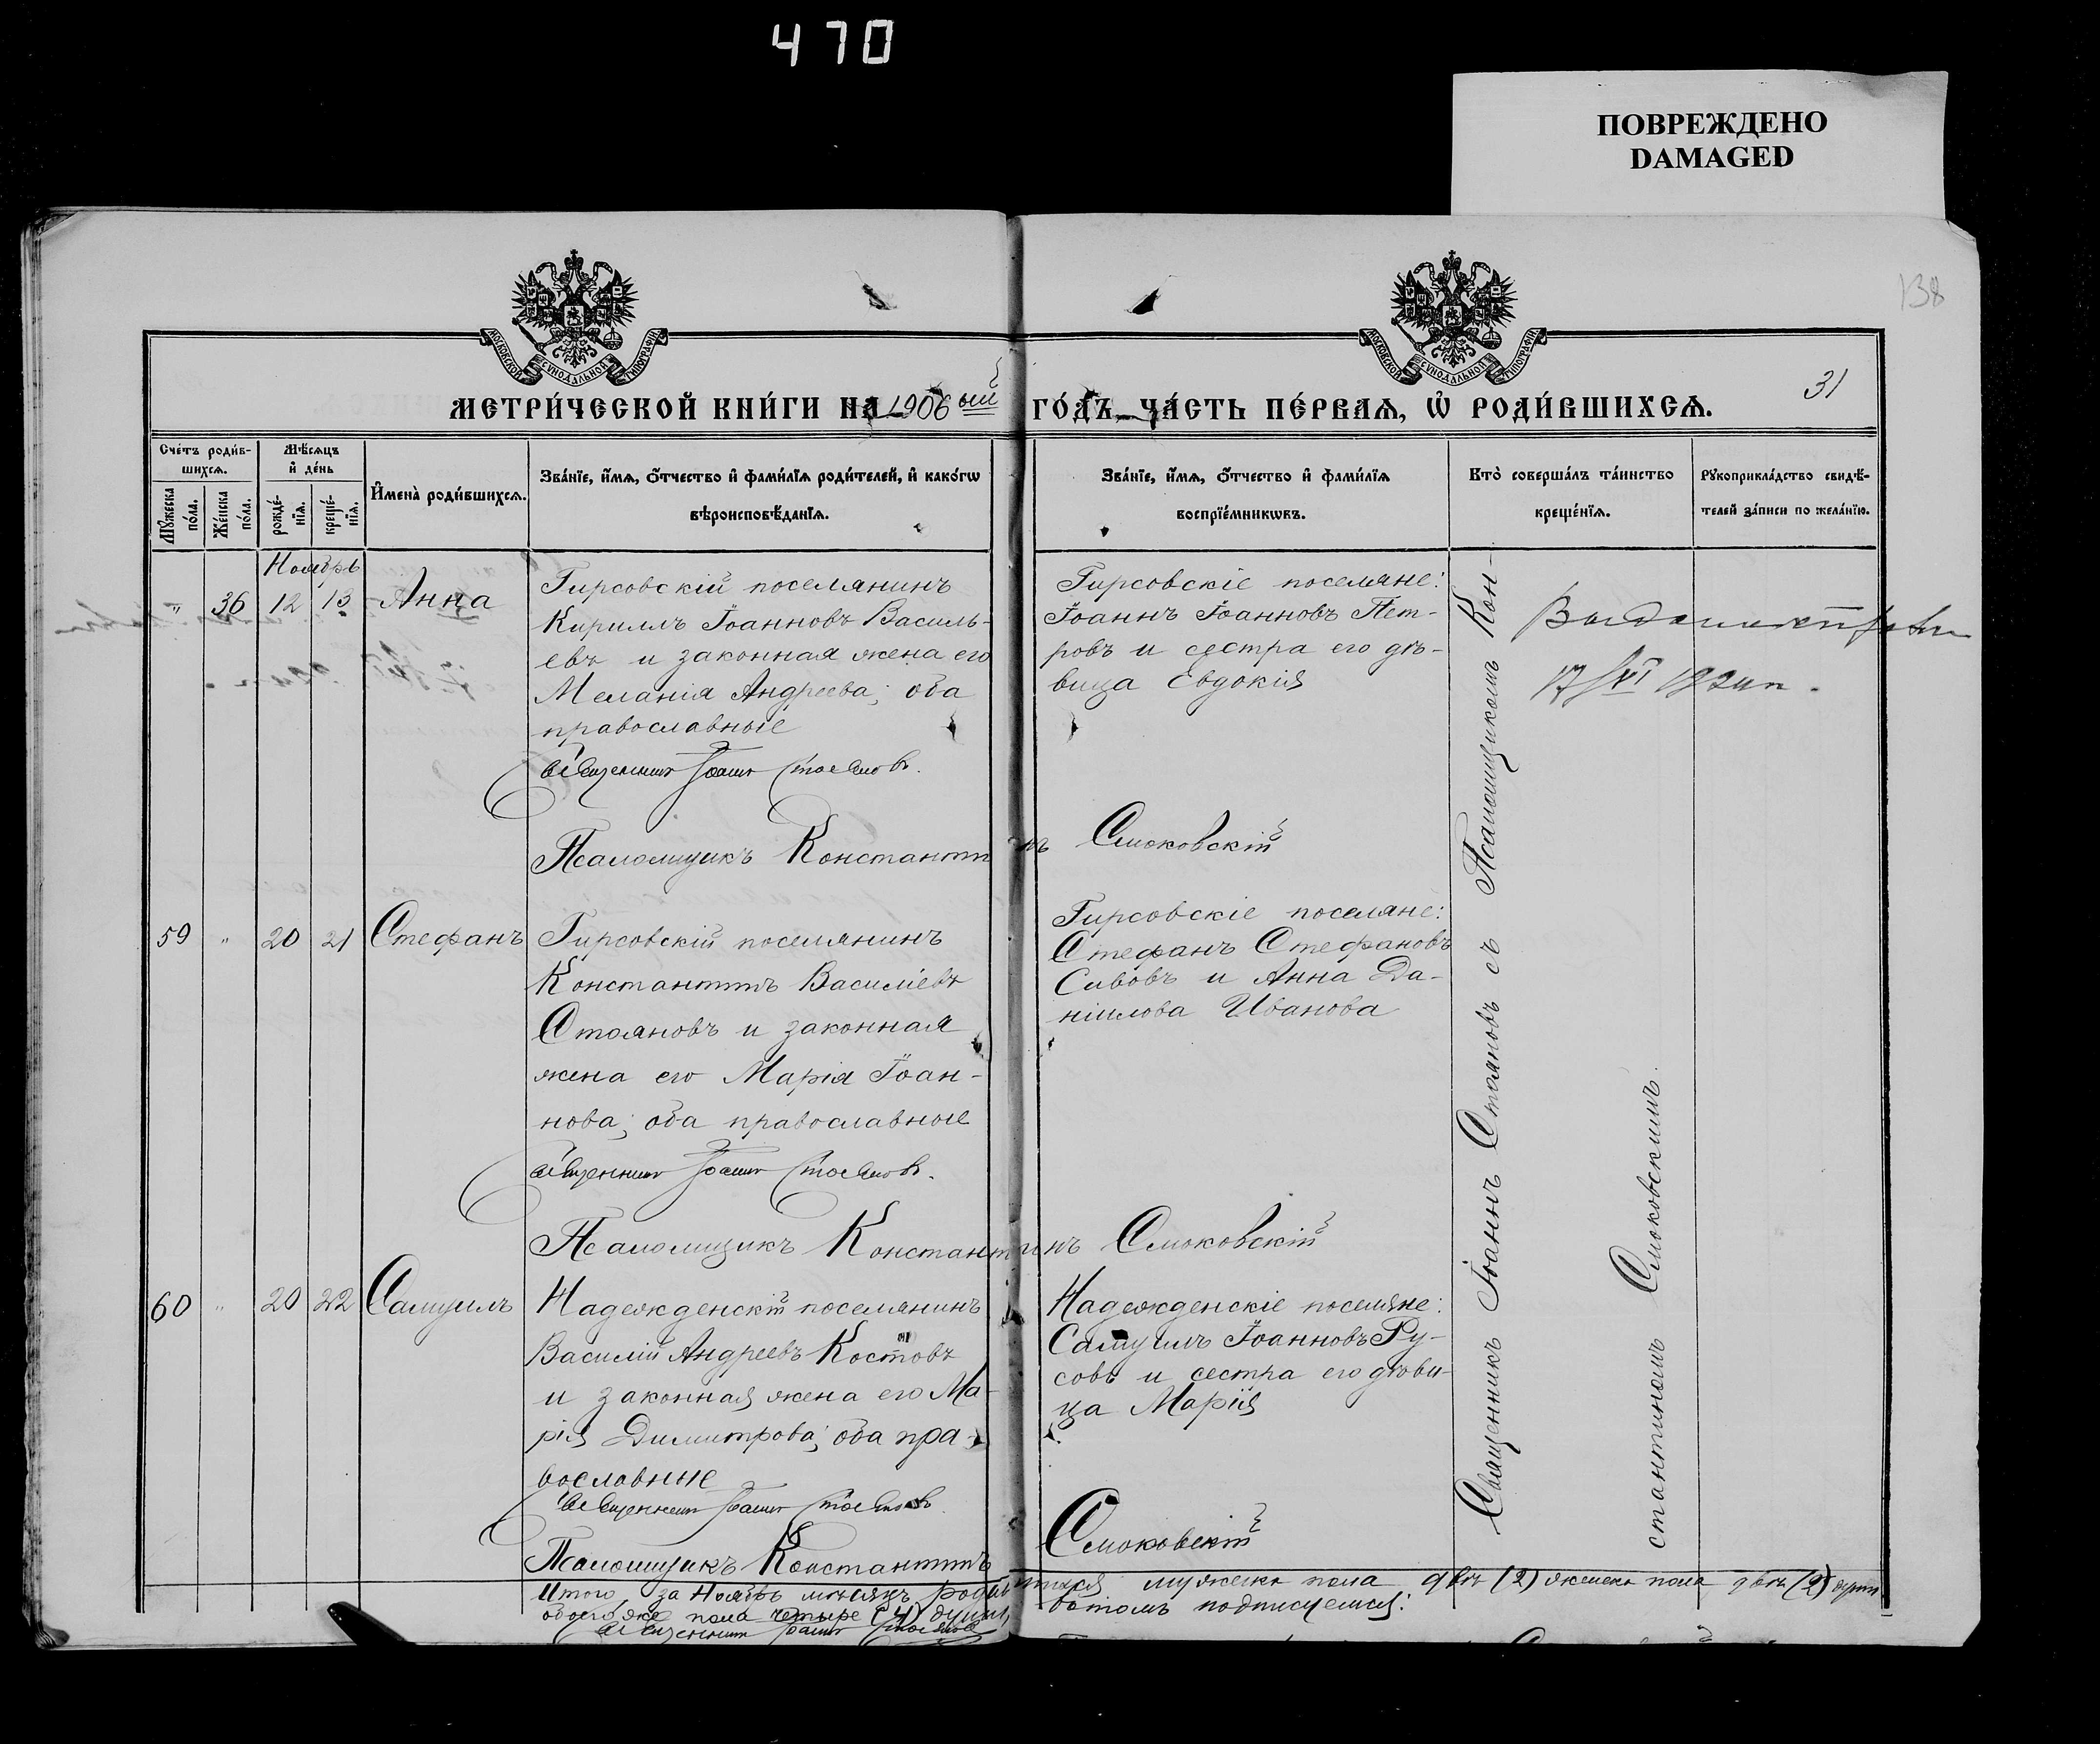 470
ПОВРЕЖДЕНО
DAMAGED
138
МОСКОВСКОЙ СУНОДАЛЬНОЙ ТИПОГРАФІИ
МОСКОВСКОЙ СУНОДАЛЬНОЙ ТИПОГРАФІИ
31
МЕТРИ́ЧЕСКОЙ КНИ́ГИ НА 1906ый ГО́ДЪ, ЧА́СТЬ ПЕ́РВАѦ, Ѡ҆ РОДИ́ВШИХСѦ.
Сче́тъ роди́в-
шихсѧ.
Мꙋ́жеска по́ла.
Же́нска по́ла.
Мѣ́сѧцъ
и҆ де́нь
рожде́-
нїѧ.
креще́-
нїѧ.
И҆мена̀ роди́вшихсѧ.
Зва́нїе, и҆́мѧ, о҆́тчество и҆ фами́лїѧ роди́телей, и҆ како́гѡ
вѣроисповѣ́данїѧ.
Зва́нїе, и҆́мѧ, о҆́тчество и҆ фами́лїѧ
воспрїе́мникѡвъ.
Кто̀ соверша́лъ та́инство
креще́нїѧ.
Рꙋкоприкла́дство свидѣ́-
телей за́писи по жела́нїю.
Ноябрь
" 36 12 13 Анна
Гирсовскій поселянинъ
Кириллъ Іоанновъ Василь-
евъ и законная жена его
Меланія Андреева; оба
православные
Священникъ Іоаннъ Стояновъ.
Псаломщикъ Константинъ Смоковскій
Гирсовскіе поселяне:
Іоаннъ Іоанновъ Пет-
ровъ и сестра его дѣ-
вица Евдокія
Священникъ Іоаннъ Стояновъ съ Псаломщикомъ Кон-
стантиномъ Смоковскимъ.
17/VI 192
59 " 20 21 Стефанъ
Гирсовскій поселянинъ
Константинъ Василіевъ
Стояновъ и законная
жена его Марія Іоан-
нова; оба православные
Священникъ Іоаннъ Стояновъ.
Псаломщикъ Константинъ Смоковскій
Гирсовскіе поселяне:
Стефанъ Стефановъ
Сивовъ и Анна Да-
ніилова Иванова
60 " 20 22 Самуилъ
Надежденскій поселянинъ
Василій Андреевъ Костовъ
и законная жена его Ма-
рія Димитрова; оба пра-
вославные
Священникъ Іоаннъ Стояновъ.
Псаломщикъ Константинъ Смоковскій
Надежденскіе поселяне:
Самуилъ Іоанновъ Ру-
совъ и сестра его дѣви-
ца Марія
Итого, за Ноябрь мѣсяцъ родившихся мужеска пола двѣ (2) женска пола двѣ (2) души
обоего же пола четыре (4) души, въ томъ подписуемся:
Священникъ Іоаннъ Стояновъ